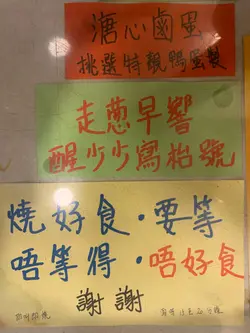 溏心鹵蛋
挑選特靚鴨蛋製
走葱早響
醒少少寫枱號
燒好食·要等
唔等得·唔好食
謝謝